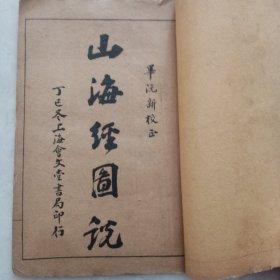 畢沅新校正
山海經圖説
丁巳冬上海會文堂書局印行